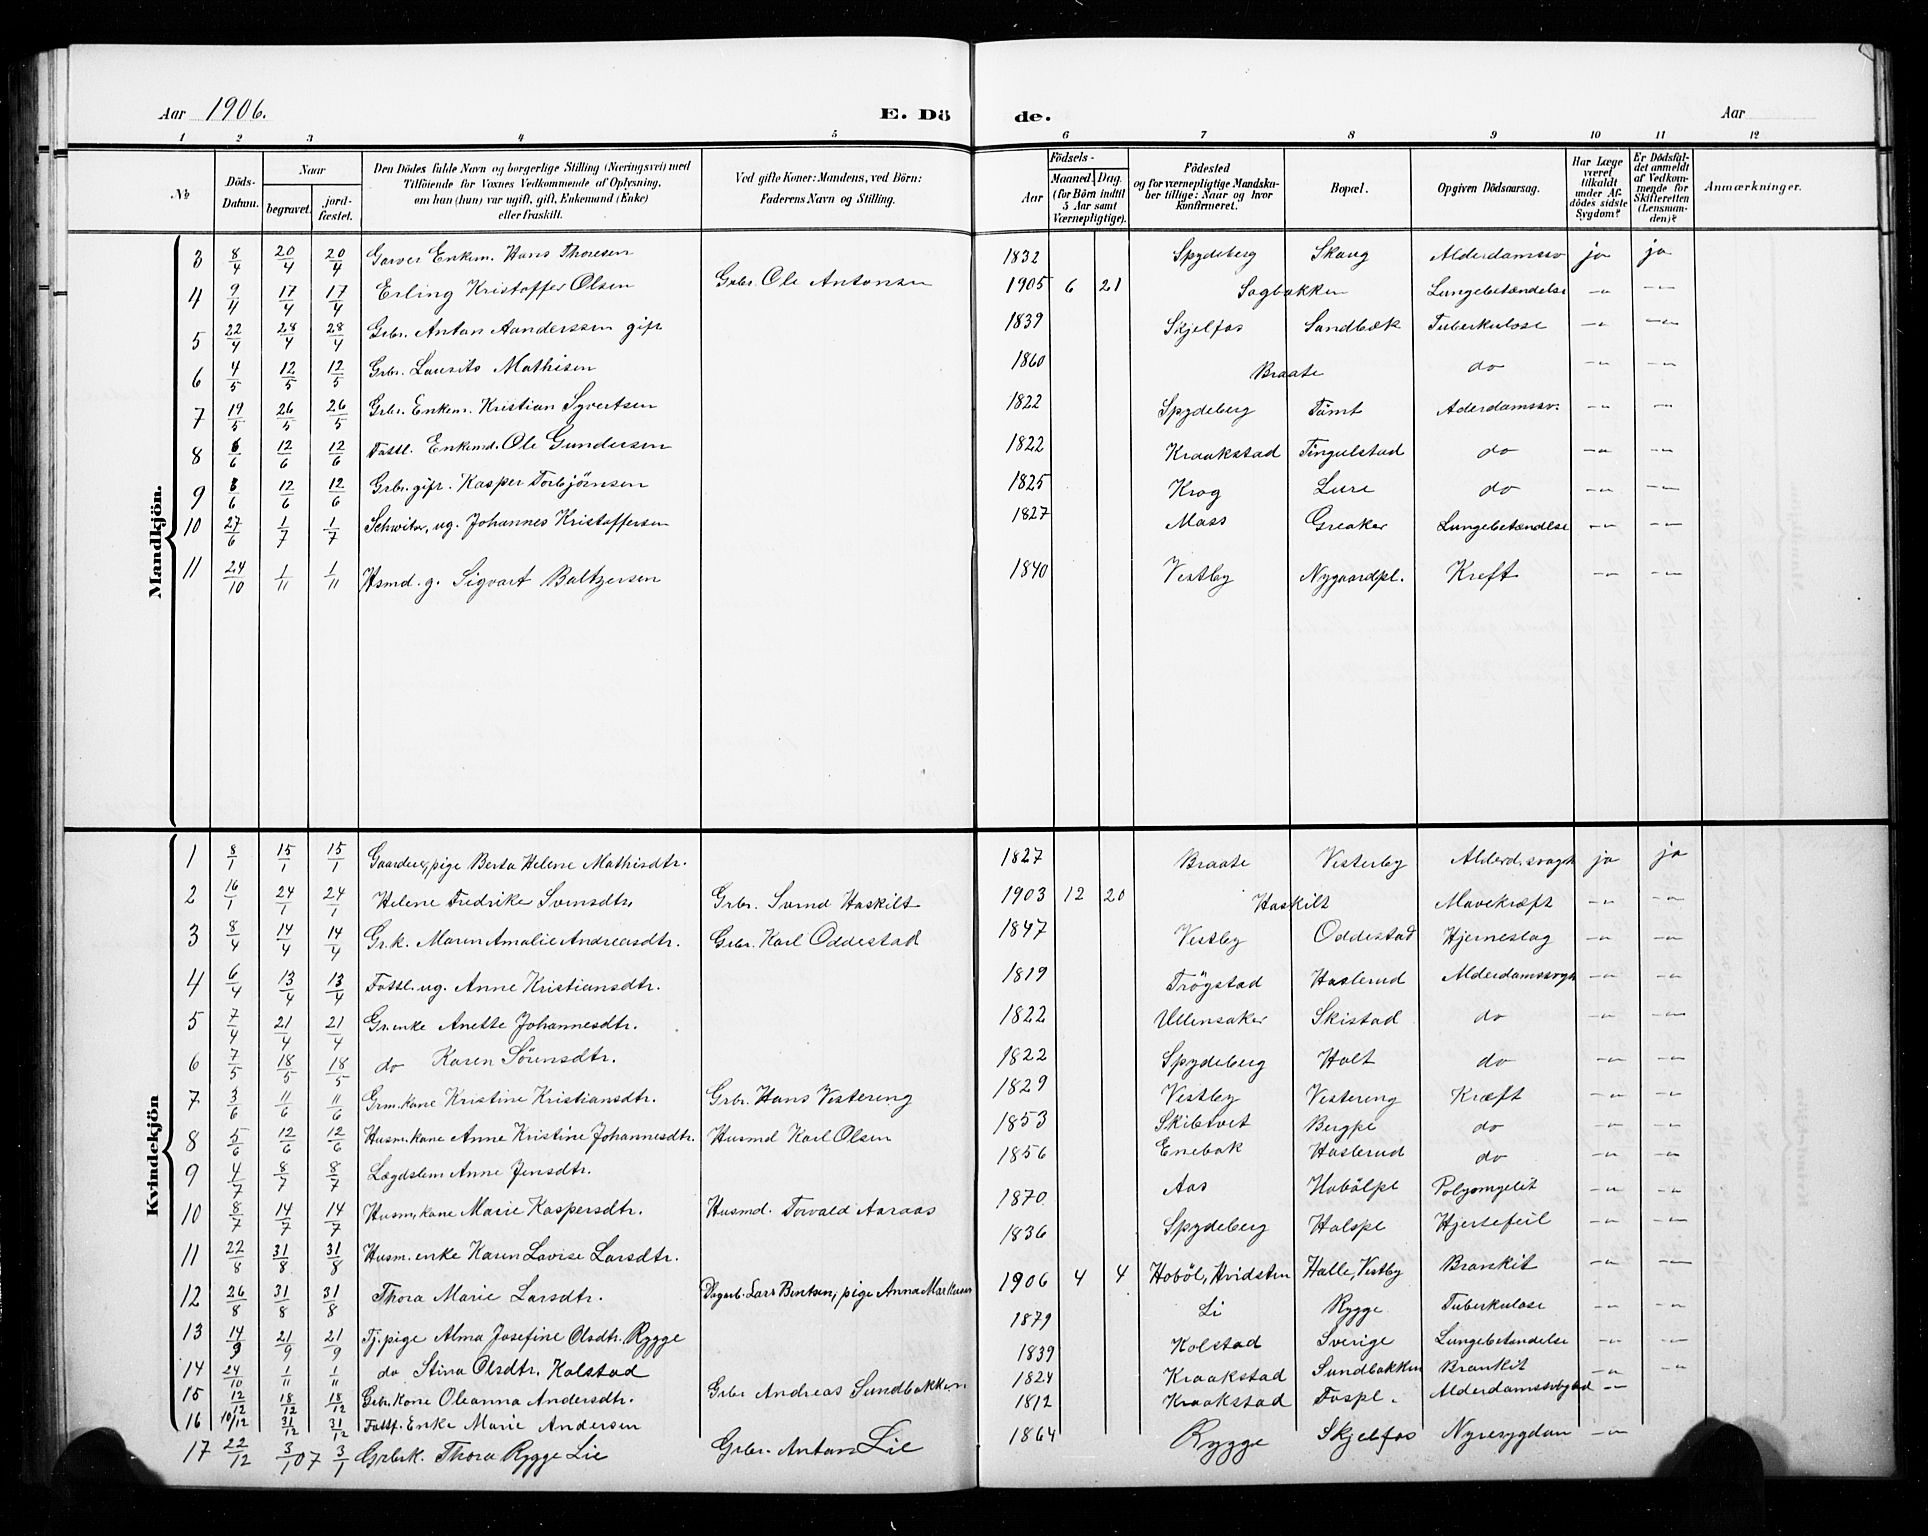 Aar 1906. E. Dö de. Aar
1 2 3 4 5 6 7 8 9 10 11 12
No Döds-Datum. Naar begravet. jordfæstet. Den Dödes fulde Navn og borgerlige Stilling (Næringsvei) med Tilföiende for Voxnes Vedkommende af Oplysning, om han (hun) var ugift, gift, Enkemand (Enke) eller fraskilt. Ved gifte Koner: Mandens, ved Börn: Faderens Navn og Stilling. Födsels- Aar Maaned. Dag. (for Börn indtil 5 Aar samt Værnepligtige). Födested og for værnepligtige Mandskaber tillige: Naar og hvor konfirmeret. Bopæl. Opgiven Dödsaarsag. Har Læge været tilkaldt under Afdödes sidste Sygdom? Er Dödsfaldet anmeldt af Vedkommende for Skifteretten (Lensmanden)? Anmærkninger.
Mandkjön.
3 8/4 20/4 20/4 Garver Enkem. Hans Thoresen 1832 Spydeberg Skaug Alderdamssv ja ja
4 9/4 17/4 17/4 Erling Kristoffer Olsen Grbr. Ole Antonsen 1905 6 21 Sagbakken Lungebetændelse —"— —"—
5 22/4 28/4 28/4 Grbr. Anton Aanderssen gift 1839 Skjelfos Sandbæk Tuberkulose —"— —"—
6 4/5 12/5 12/5 Grbr. Lausits Mathisen 1860 Braate do —"— —"—
7 19/5 26/5 26/5 Grbr. Enkem. Kristian Syvertsen 1822 Spydeberg Tömt Aderdamssv. —"— —"—
8 6/6 12/6 12/6 Fattl. Enkemd. Ole Gundersen 1822 Kraakstad Tingulstad do —"— —"—
9 8/6 12/6 12/6 Grbr. gift. Kasper Torbjörnsen 1825 Krog Lure do —"— —"—
10 27/6 1/7 1/7 ug. Johannes Kristoffersen 1827 Mass Greaker Lungebetændelse —"— —"—
11 24/10 1/11 1/11 Hsmd. g. Sigvart Baltzersen 1840 Vestby Nygaardpl. Kreft —"— —"—
Kvindekjön
1 8/1 15/1 15/1 pige Berta Helene Mathisdtr. 1827 Braate Vesterby Alderd.svagh ja ja
2 16/1 24/1 24/1 Helene Fredrike Svensdtr. Grbr. Svend Haskilt 1903 12 20 Haskilt Mavekræft —"— —"—
3 8/4 14/4 14/4 Gr.k. Maren Amalie Andreasdtr. Grbr. Karl Oddestad 1847 Vestby Oddestad Hjerneslag —"— —"—
4 6/4 13/4 13/4 Fattl. ug. Anne Kristiansdtr. 1819 Trögstad Haslerud Alderdamssvgh —"— —"—
5 7/4 21/4 21/4 Gr.enke Anette Johannesdtr. 1822 Ullensaker Skistad do —"— —"—
6 7/5 18/5 18/5 do Karen Sörensdtr. 1822 Spydeberg Holt do —"— —"—
7 3/6 11/6 11/6 Grm.kone Kristine Kristiansdtr. Grbr. Hans Vestereng 1829 Vestby Vestereng Kræft —"— —"—
8 5/6 12/6 12/6 Husm.kane Anne Kristine Johannesdtr. Husmd Karl Olsen 1853 Skibtvet Bergpl do —"— —"—
9 4/7 8/7 8/7 Lægdslem Anne Jensdtr. 1856 Enebak Haslerud do —"— —"—
10 8/7 14/7 14/7 Husm.kane Marie Kaspersdtr. Husmd. Torvald Aaraas 1870 Aas Hobölpl Polyomyelit —"— —"—
11 22/8 31/8 31/8 Husm. enke Karen Lovise Larsdtr. 1836 Spydeberg Holspl Hjertefeil —"— —"—
12 26/8 31/8 31/8 Thora Marie Larsdtr. Dagarb. Lars Bentsen, pige Anna 1906 4 4 Haböl, Hvidsten Halle, Vestby Bronkit —"— —"—
13 14/9 21/9 21/9 Tj. pige Alma Josefine Olsdtr. Rygge 1879 Li Rygge Tuberkulose —"— —"—
14 24/10 1/11 1/11 do Stina Olsdtr. Kolstad 1839 Kolstad Sverige Lungebetandelse —"— —"—
15 12/12 18/12 18/12 Grbr. kone Oleanna Andersdtr. Grbr Andreas Sundbakken 1824 Kraakstad Sundbakken Bronkit —"— —"—
16 10/12 31/12 31/12 Fattf. Enke Marie Andersen 1812 Kraakstad Fospl. —"—
17 22/12 3/1 07 3/1 Grbrk. Thora Rygge Lie Grbr. Anton Lie 1864 Rygge Skjelfos Nyresygdom —"—